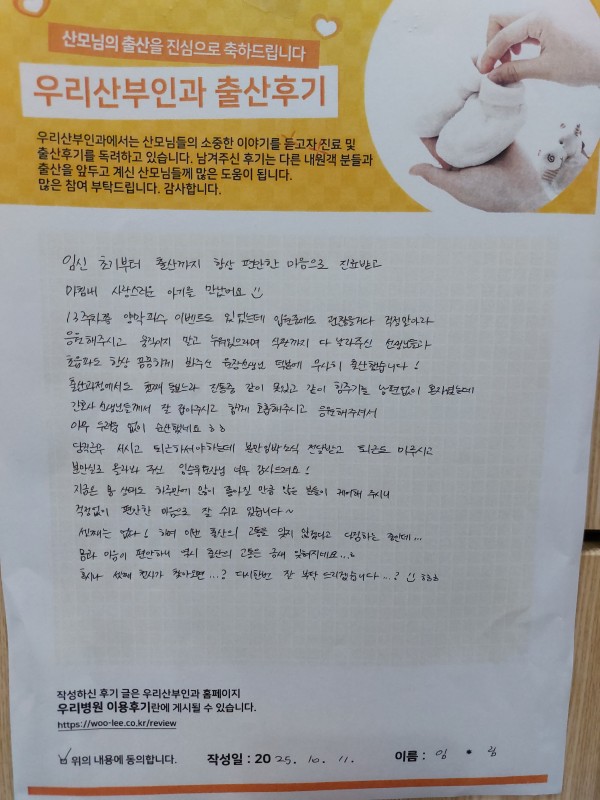 산모님의 출산을 진심으로 축하드립니다
우리산부인과 출산후기
우리산부인과에서는 산모님들의 소중한 이야기를 듣고자 진료 및
출산후기를 독려하고 있습니다. 남겨주신 후기는 다른 내원객 분들과
출산을 앞두고 계신 산모님들께 많은 도움이 됩니다.
많은 참여 부탁드립니다. 감사합니다.
임신 초기부터 출산까지 항상 편안한 마음으로 진료받고
마침내 사랑스러운 아기를 만났어요
13주차쯤 양막파수 이벤트도 있었는데 입원중에도 괜찮을거다 걱정말아라
응원해주시고 움직이지 말고 누워있으라며 식판까지 다 날라주신 선생님들과
초음파도 항상 꼼꼼하게 봐주신 원장선생님 덕분에 무사히 출산했습니다!
출산과정에서도 첫째 돌보느라 진통중 같이 못있고 같이 힘주기를 남편없이 혼자였는데
간호사 선생님들께서 잘 잡아주시고 함께 호흡해주시고 응원해주셔서
아무 두려움 없이 순산했네요 ㅎㅎ
당직근무 서시고 퇴근하셔야하는데 분만임박소식 전달받고 퇴근도 미루시고
분만실로 올라와 주신 임승무원장님 너무 감사드려요!
지금은 몸 상태도 하루만에 많이 좋아진 만큼 많은 분들이 케어해 주시니
걱정없이 편안한 마음으로 잘 쉬고 있습니다~
셋째는 없다! 하며 이번 출산의 고통을 잊지 않겠다고 다짐하는 중인데...
몸과 마음이 편안하니 역시 출산의 고통은 금새 잊혀지네요...ㅎ
혹시나 셋째 천사가 찾아오면...? 다시한번 잘 부탁 드리겠습니다...? ㅎㅎㅎ
작성하신 후기 글은 우리산부인과 홈페이지
우리병원 이용후기란에 게시될 수 있습니다.
https://woo-lee.co.kr/review
위의 내용에 동의합니다. 작성일 : 2025. 10. 11. 이름 : 임 * 림